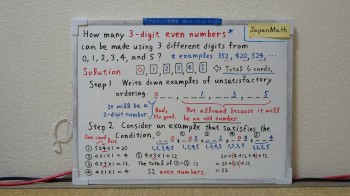 How many 3-digit even numbers*
can be made using 3 different digits from
0, 1, 2, 3, 4, and 5 ? * examples 352, 420, 524, ...
JapanMath
Solution 0 1 2 3 4 5 ← Total 6 cards.
Step 1 Write down examples of unsatisfactory
ordering. 0 _ _ , _ _ 1, _ _ 3, _ _ 5
It will be a
2-digit number.
Bad,
No good.
Not allowed because it will
be an odd number.
Step 2 Consider an example that satisfies the
Condition.
One card less
1,2,3,4,5
① 5×4×1 = 20
② 4×1×1 = 4
③ 4×3×1 = 12
④ 4×1×1 = 4
⑤ 4×3×1 = 12
The total of ①~⑤
20+(4+12)+(4+12)
= 52
52 even numbers